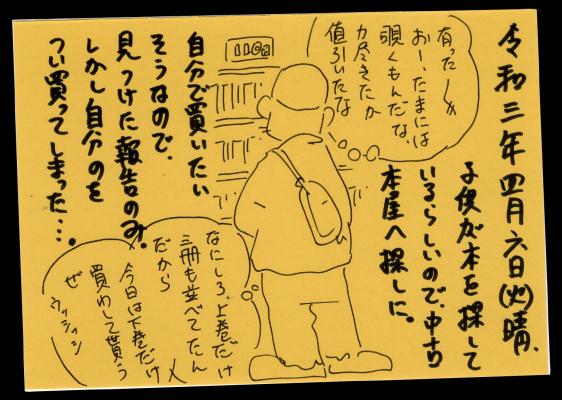 令和三年四月六日(火)晴、
子供が本を探して
いるらしいので、中古
本屋へ探しに。
有った〜〆
おー、たまには
覗くもんだな、
力尽きたか
値引いたな
110円
自分で買いたい
そうなので、
見つけた報告のみ。
しかし自分のを
つい買ってしまった…。
なにしろ、上巻だけ
三冊も並べてたん
だから
今日は下巻だけ
買わして貰う
ぜ ウッシッシ